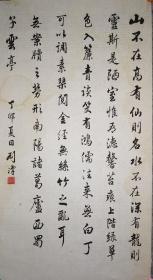 山不在高有仙則名水不在深有龍則
靈斯是陋室惟吾德馨苔痕上階綠草
色入簾青談笑有鴻儒往來無白丁
可以調素琴閱金經無絲竹之亂耳
無案牘之勞形南陽諸葛廬西蜀
子雲亭
丁卯夏日